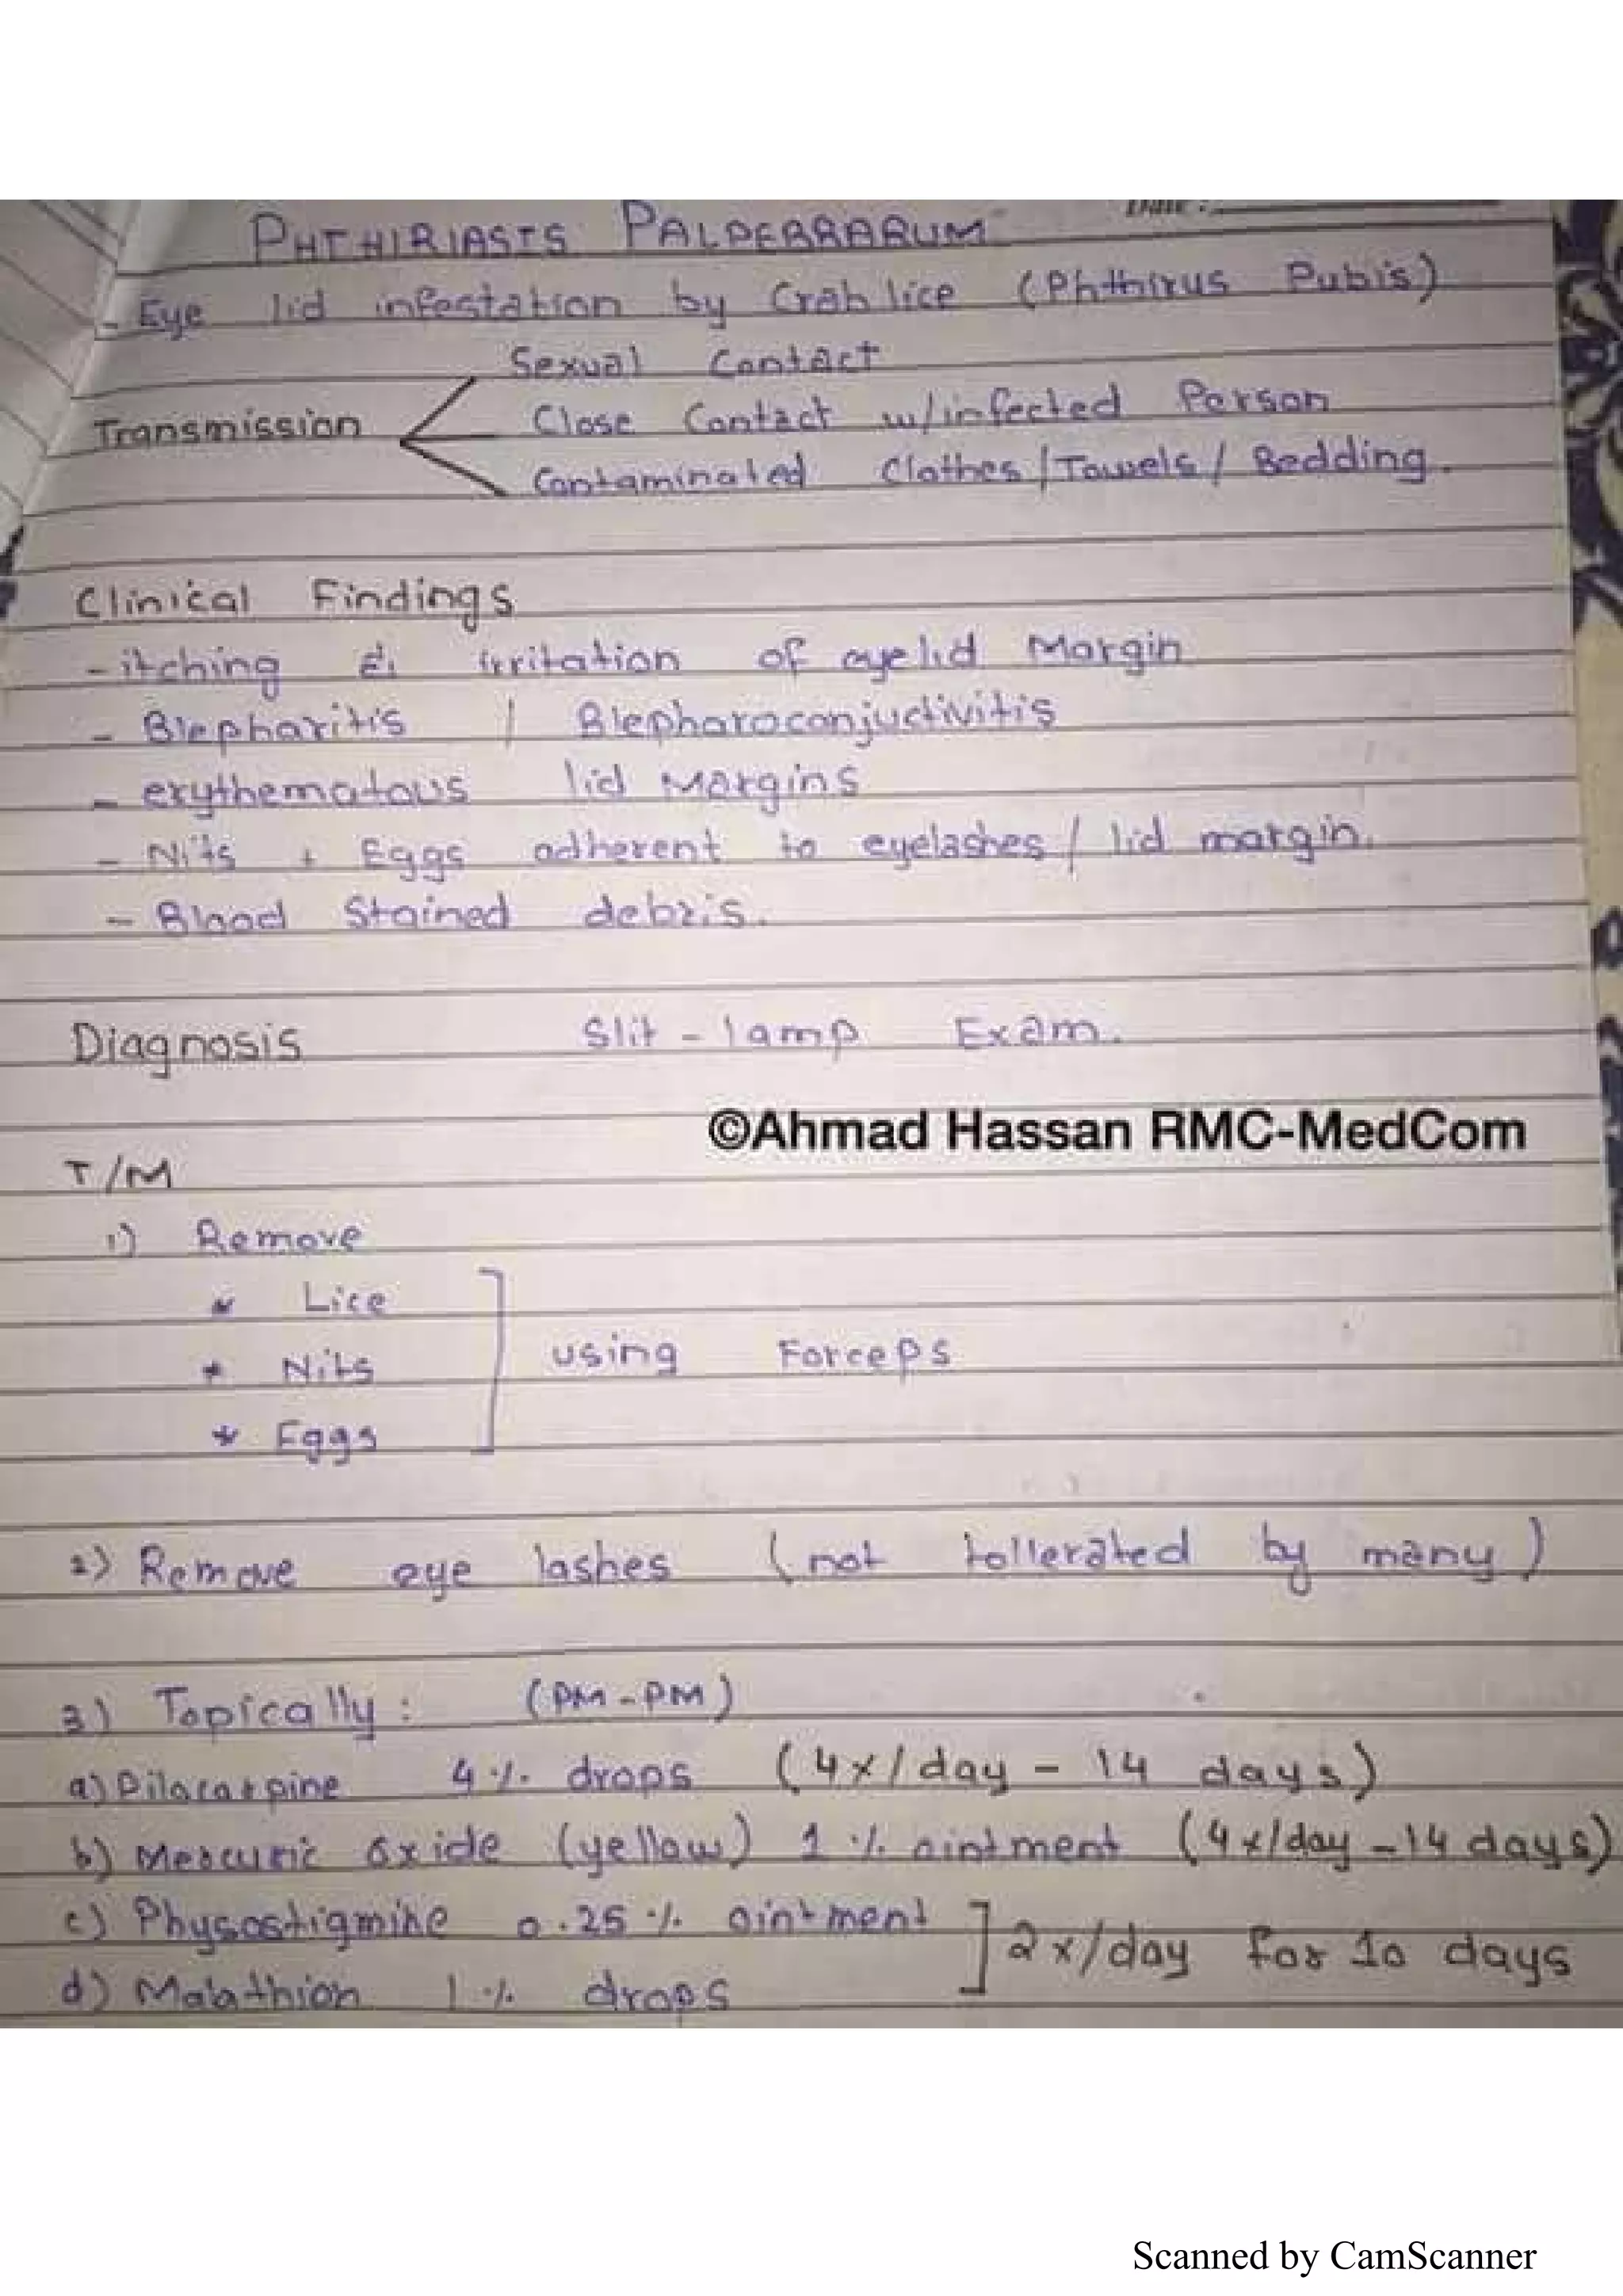 Date :
PHTHIRIASIS PALPEBRARUM
- Eye lid infestation by Crab lice (Phthirus Pubis)
Sexual Contact
Transmission
Close Contact w/infected Person
Contaminated Clothes/Towels/ Bedding.
Clinical Findings
- itching & irritation of eyelid Margin
- Blepharitis / Blepharoconjuctivitis
- erythematous lid Margins
- Nits + Eggs adherent to eyelashes / lid margin.
- Blood Stained debris.
Diagnosis Slit - lamp Exam.
©Ahmad Hassan RMC-MedCom
T/M
1) Remove
* Lice
* Nits using Forceps
* Eggs
2) Remove eye lashes (not tollerated by many)
3) Topically : (PM - PM)
a) Pilocarpine 4 % drops (4x/day - 14 days)
b) Mercuric oxide (yellow) 1 % ointment (4x/day - 14 days)
c) Physostigmine 0.25 % ointment
2x/day for 10 days
d) Malathion 1 % drops
Scanned by CamScanner